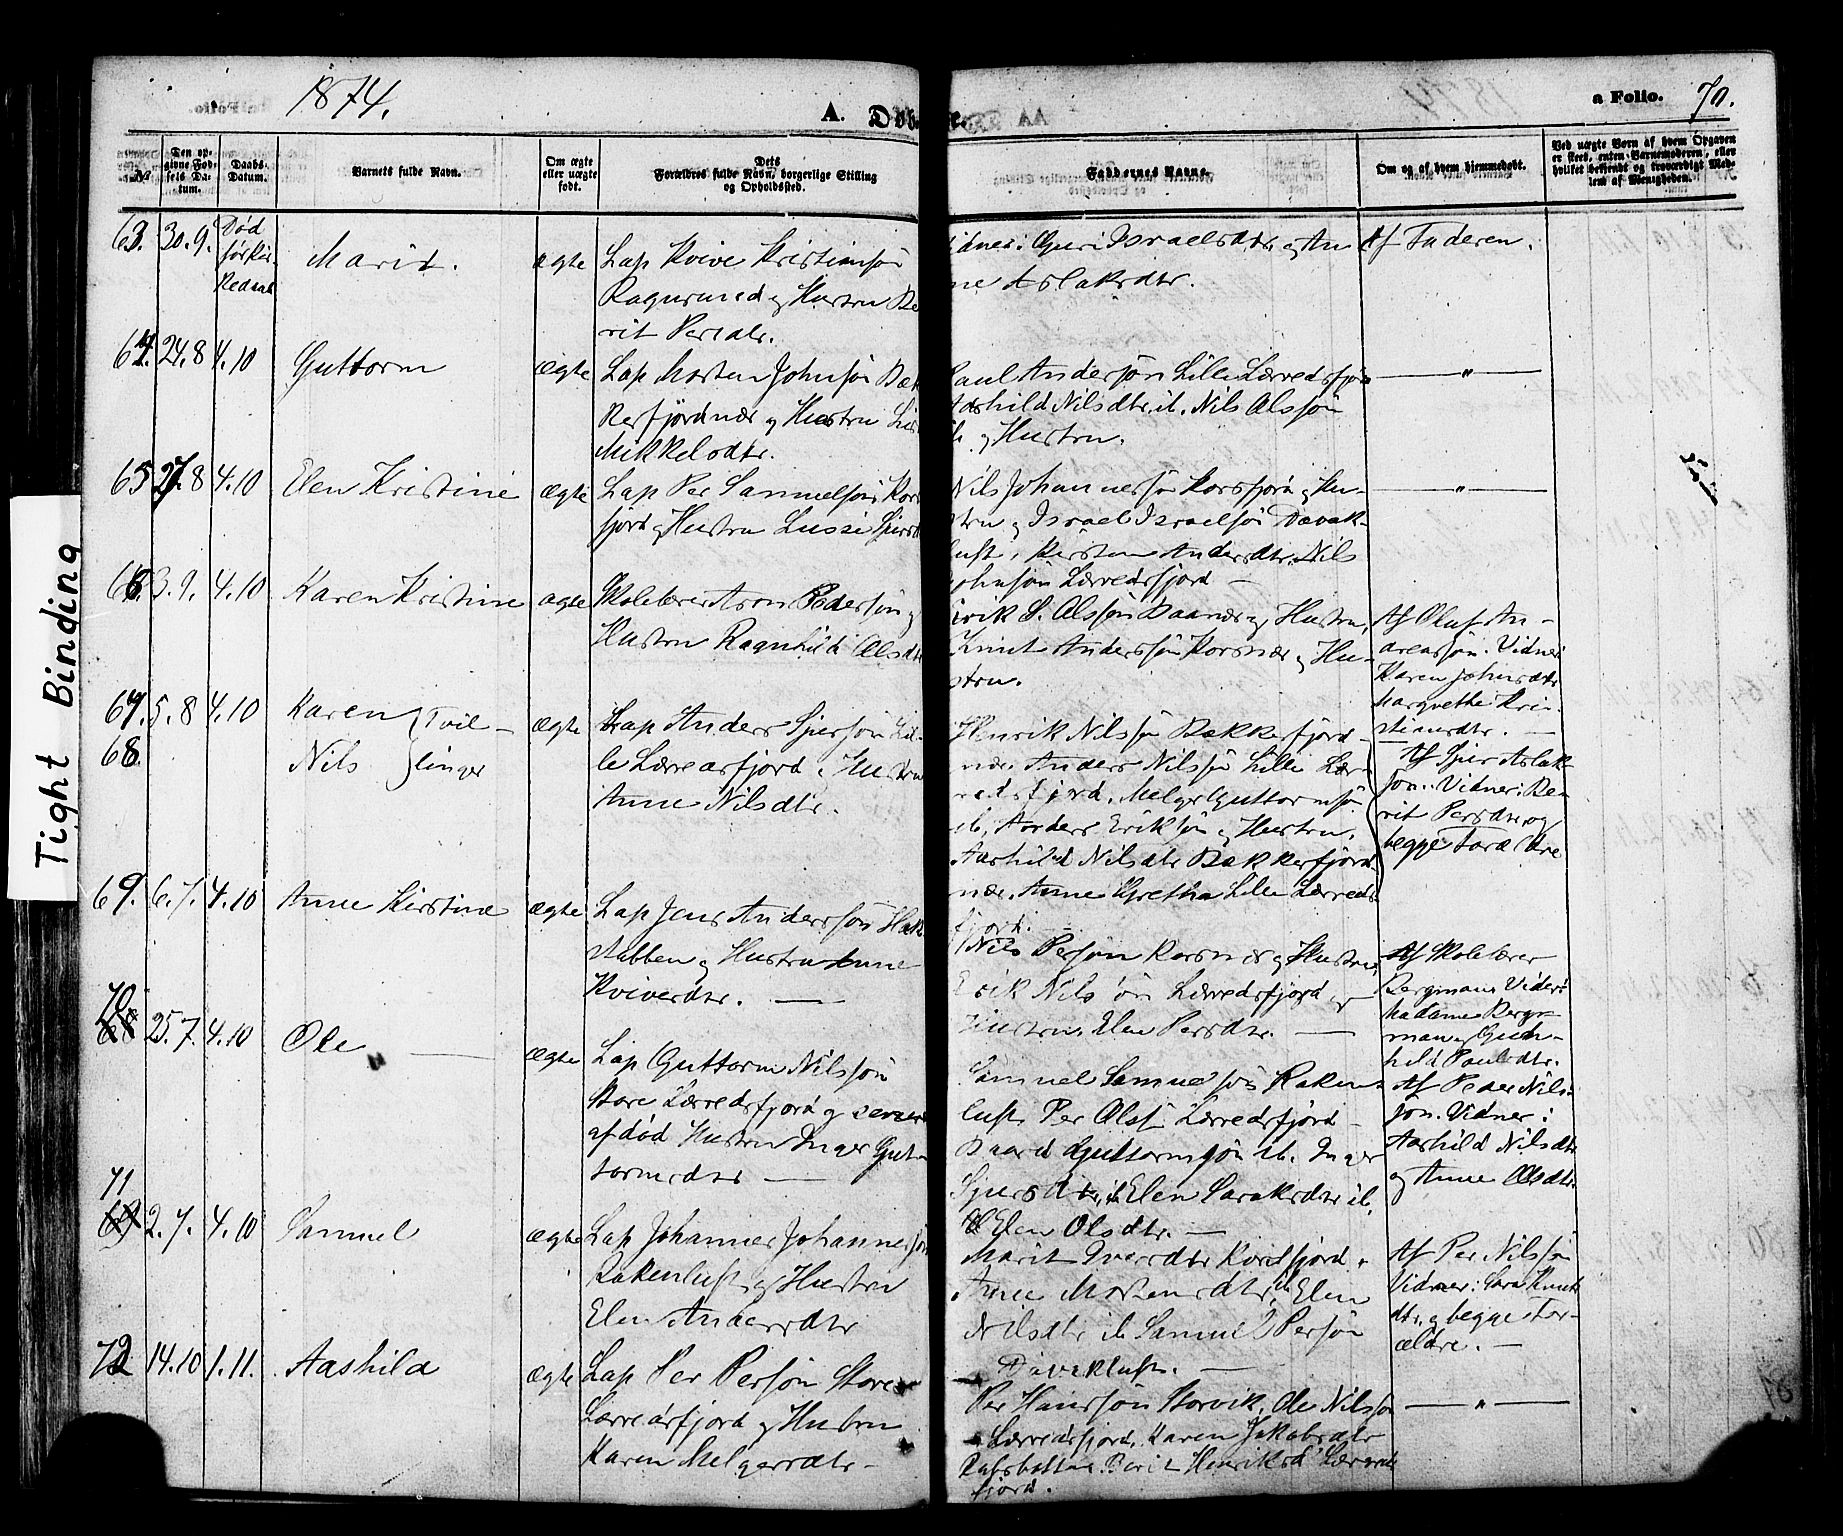 1874.
A. Døbte.
a Folio. 70.
No
Den opgivne Fødsels Datum.
Daabs-Datum.
Barnets fulde Navn.
Om ægte eller uægte født.
Dets Forældres fulde Navn, borgerlige Stilling og Opholdssted.
Faddernes Navne.
Om og af hvem hjemmedøbt.
Ved uægte Børn af hvem Opgaven er skeet, enten Barnemoderen, eller hvilket bekjendt og troværdigt Medlem af Menigheden.
63. 30.9. Død
før Kir.
Marit.
ægte
Lap Kvive Kristiansøn
og Hustru Be
rit Persdtr.
Vidner: Guri Israelsdtr. og An
ne Aslaksdtr.
Af Faderen.
64. 24.8 4.10
Guttorm
ægte
Lap Morten Johnsøn Bæk
kerfjordnæs og Hustru
Mikkelsdtr.
Paul Andersøn Lille Lærredsfjord
Aashild Nilsdtr. ib. Nils Olssøn
ib. og Hustru.
— " —
65 27.8 4.10
Elen Kristine
ægte
Lap Per Samuelsøn Kors
fjord og Hustru Lussi Sjursd
Nils Johannessøn Korsfjord og Hu-
stru og Israel Israelsøn Davak-
luft, Kirsten Andersdtr. Nils
Johnsøn Lærredsfjord —
— " —
66. 3.9. 4.10
Karen Kristine
ægte
Skolelærer Aron Pedersøn og
Hustru Ragnhild Olsdtr
Erik S. Olssøn og Hustru,
Knut Anderssøn Korsnæs og Hu-
stru.
Af Oluf An-
dreassøn. Vidner:
Karen Johnsdtr
Margrethe Kri-
stiansdtr. —
67. 5.8 4.10
68.
Karen } Tvil-
Nils } linger
ægte
Lap Anders Sjursøn Lil-
le Lærredsfjord og Hustru
Anne Nilsdtr.
Henrik Nilssøn Bækkerfjord-
næs. Anders Nilssøn Lille Lær-
redsfjord. Melger Guttormsøn
ib. Anders Eriksøn og Hustru.
Aashild Nilsdtr Bækkerfjord
næs. Anne Gretha Lille Lærreds
fjord.
Af Sjur Aslak-
søn. Vidner: Be-
rit Persdtr og
begge Forældre
69. 6.7. 4.10
Anne Kirstine
ægte
Lap Jens Anderssøn Hak
stabben og Hustru Anne
Kviversdtr. —
Nils Persøn Korsnæs og Hustru,
Erik Nilssøn Lærredsfjord og
Hustru. Elen Persdtr. —
Af Skolelærer
Bergman. Vidner:
Madame Berg-
man og Gun-
hild Paulsdtr.
70
68 25.7. 4.10
Ole —
ægte
Lap Guttorm Nilssøn
Store Lærredsfjord og
afdød Hustru Inger Gut-
tormsdtr —
Samuel Samuelsøn Raken-
luft. Per Olss. Lærredsfjord —
Baard Guttormsøn ib. Inger
Sjursdtr. ib. Elen Saraksdtr ib.
Elen Olsdtr. —
Af Peder Nils-
søn. Vidner:
Aashild Nilsdtr
og Anne Olsdtr.
71
69 2.7. 4.10
Samuel
ægte
Lap Johannes Johannessøn
Rakenluft og Hustru
Elen Andersdtr
Marit Iversdtr Korsfjord.
Anne Mortensdtr. ib. Elen
Nilsdtr ib Samuel Persøn
Davekluft. —
Af Per Nilssøn
Vidner: Sara Knuts
dtr. og begge For-
ældre. —
72 14.10 1.11.
Aashild
ægte
Lap Per Persøn Store
Lærredsfjord og Hustru
Karen Melgersdtr. —
Per Hanssøn Storvik, Ole Nilssøn
Lærredsfjord. Karen Jakobsdtr
Rafsbotten. Berit Henriksd Lærreds
fjord.
— " —
Tight Binding